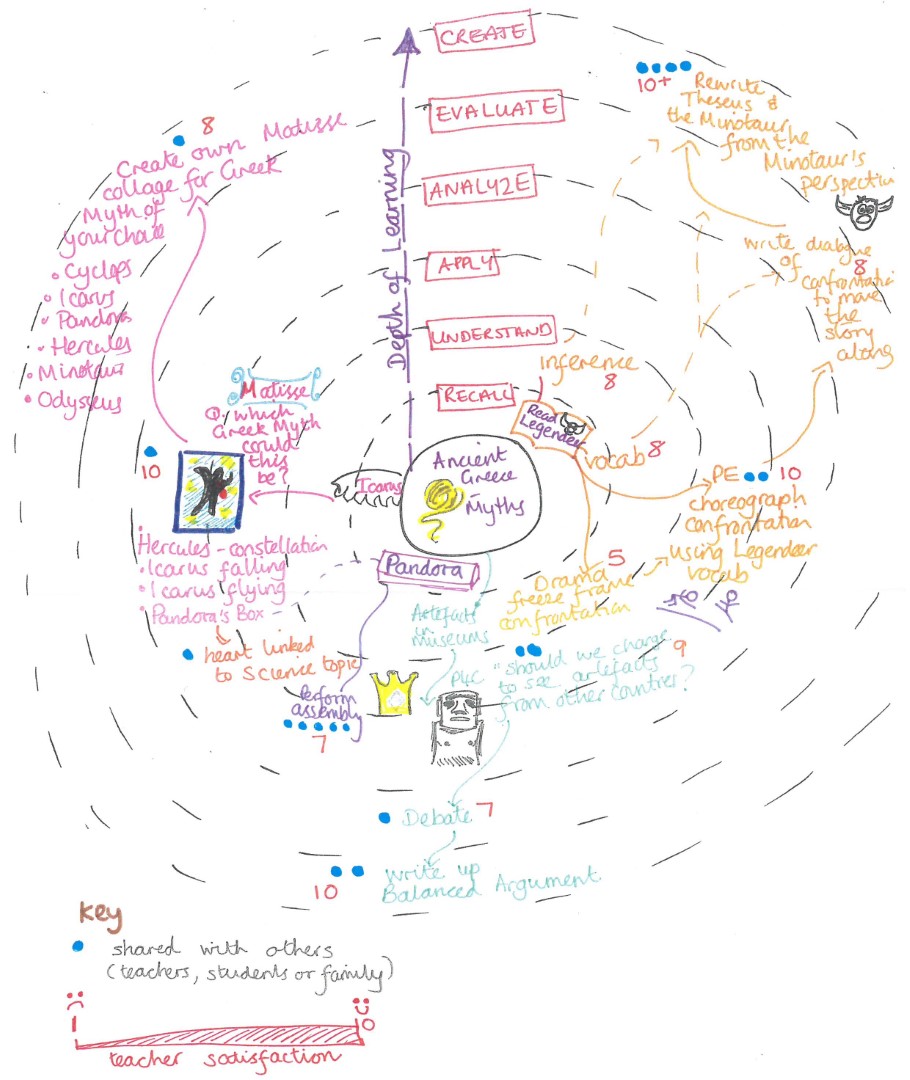 CREATE
EVALUATE
ANALYZE
APPLY
UNDERSTAND
RECALL
Depth of Learning
8
Create own Matisse
collage for Greek
Myth of
your choice
• Cyclops
• Icarus
• Pandora
• Hercules
• Minotaur
• Odysseus
10+
Rewrite
Theseus &
the Minotaur
from the
Minotaur's
perspectiv
write dialogue
of 8
confrontation
to move
the
story
along
Inference
8
Read
Legendeer
vocab 8
Matisse
Q. which
Greek Myth
could
this
be?
10
Icarus
Ancient
Greece
-
Myths
PE 10
choreograph
confrontation
using Legendeer
vocab
5
Drama
freeze frame
confrontation
Pandora
Hercules - constellation
• Icarus falling
• Icarus flying
• Pandora's Box
heart linked
to science topic
Perform
assembly
7
Artefacts
in
museums
P4C
"should we charge 9
to see artefacts
from other countries?
Debate 7
10
write up
Balanced Argument
key
shared with others
(teachers, students or family)
1
10
teacher satisfaction